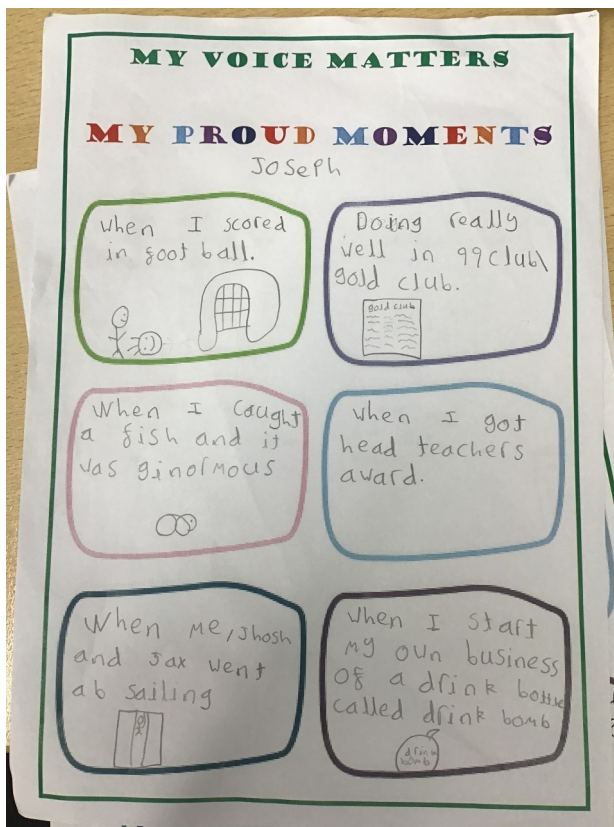 MY VOICE MATTERS
MY PROUD MOMENTS
Joseph
when I scored
in foot ball.
Doing really
well in 99club\
gold club.
gold club
When I caught
a fish and it
was ginormous
when I got
head teachers
award.
When me, Jhosh
and Jax went
ab sailing
when I start
my own business
of a drink bottle
called drink bomb
drink
bomb